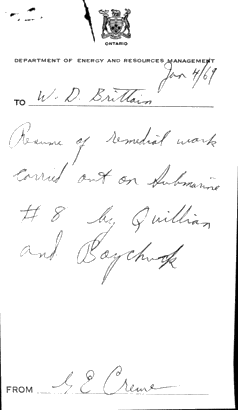 ONTARIO
DEPARTMENT OF ENERGY AND RESOURCES MANAGEMENT
Jan 4/69
TO W. D. Brittain
Resume of remedial work
carried out on Submarine
# 8 by Quillian
and Boychuk
FROM G E Creme